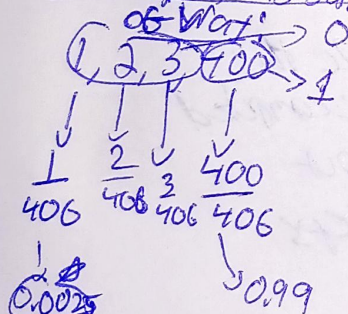 OG Way: 0
1, 2, 3, 400
1
1/406 2/406 3/406 400/406
0.0025 0.99